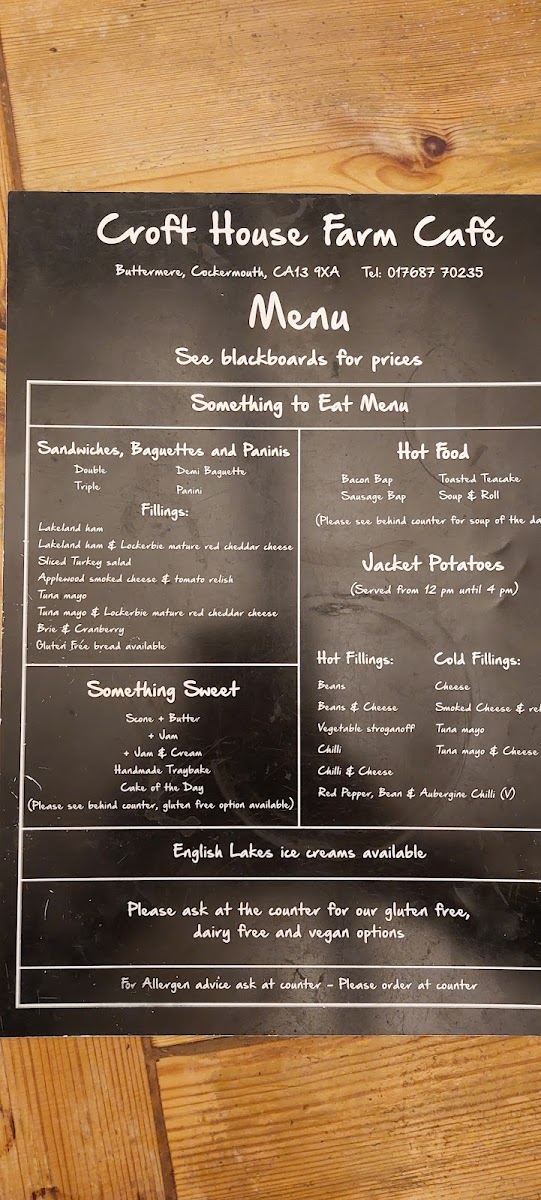 Croft House Farm Café
Buttermere, Cockermouth, CA13 9XA Tel: 017687 70235
Menu
See blackboards for prices
Something to Eat Menu
Sandwiches, Baguettes and Paninis
Double Demi Baguette
Triple Panini
Fillings:
Lakeland ham
Lakeland ham & Lockerbie mature red cheddar cheese
Sliced Turkey salad
Applewood smoked cheese & tomato relish
Tuna mayo
Tuna mayo & Lockerbie mature red cheddar cheese
Brie & Cranberry
Gluten Free bread available
Something Sweet
Scone + Butter
+ Jam
+ Jam & Cream
Handmade Traybake
Cake of the Day
(Please see behind counter, gluten free option available)
Hot Food
Bacon Bap Toasted Teacake
Sausage Bap Soup & Roll
(Please see behind counter for soup of the da
Jacket Potatoes
(Served from 12 pm until 4 pm)
Hot Fillings: Cold Fillings:
Beans Cheese
Beans & Cheese Smoked Cheese & rel
Vegetable stroganoff Tuna mayo
Chilli Tuna mayo & Cheese
Chilli & Cheese
Red Pepper, Bean & Aubergine Chilli (V)
English Lakes ice creams available
Please ask at the counter for our gluten free,
dairy free and vegan options
For Allergen advice ask at counter - Please order at counter